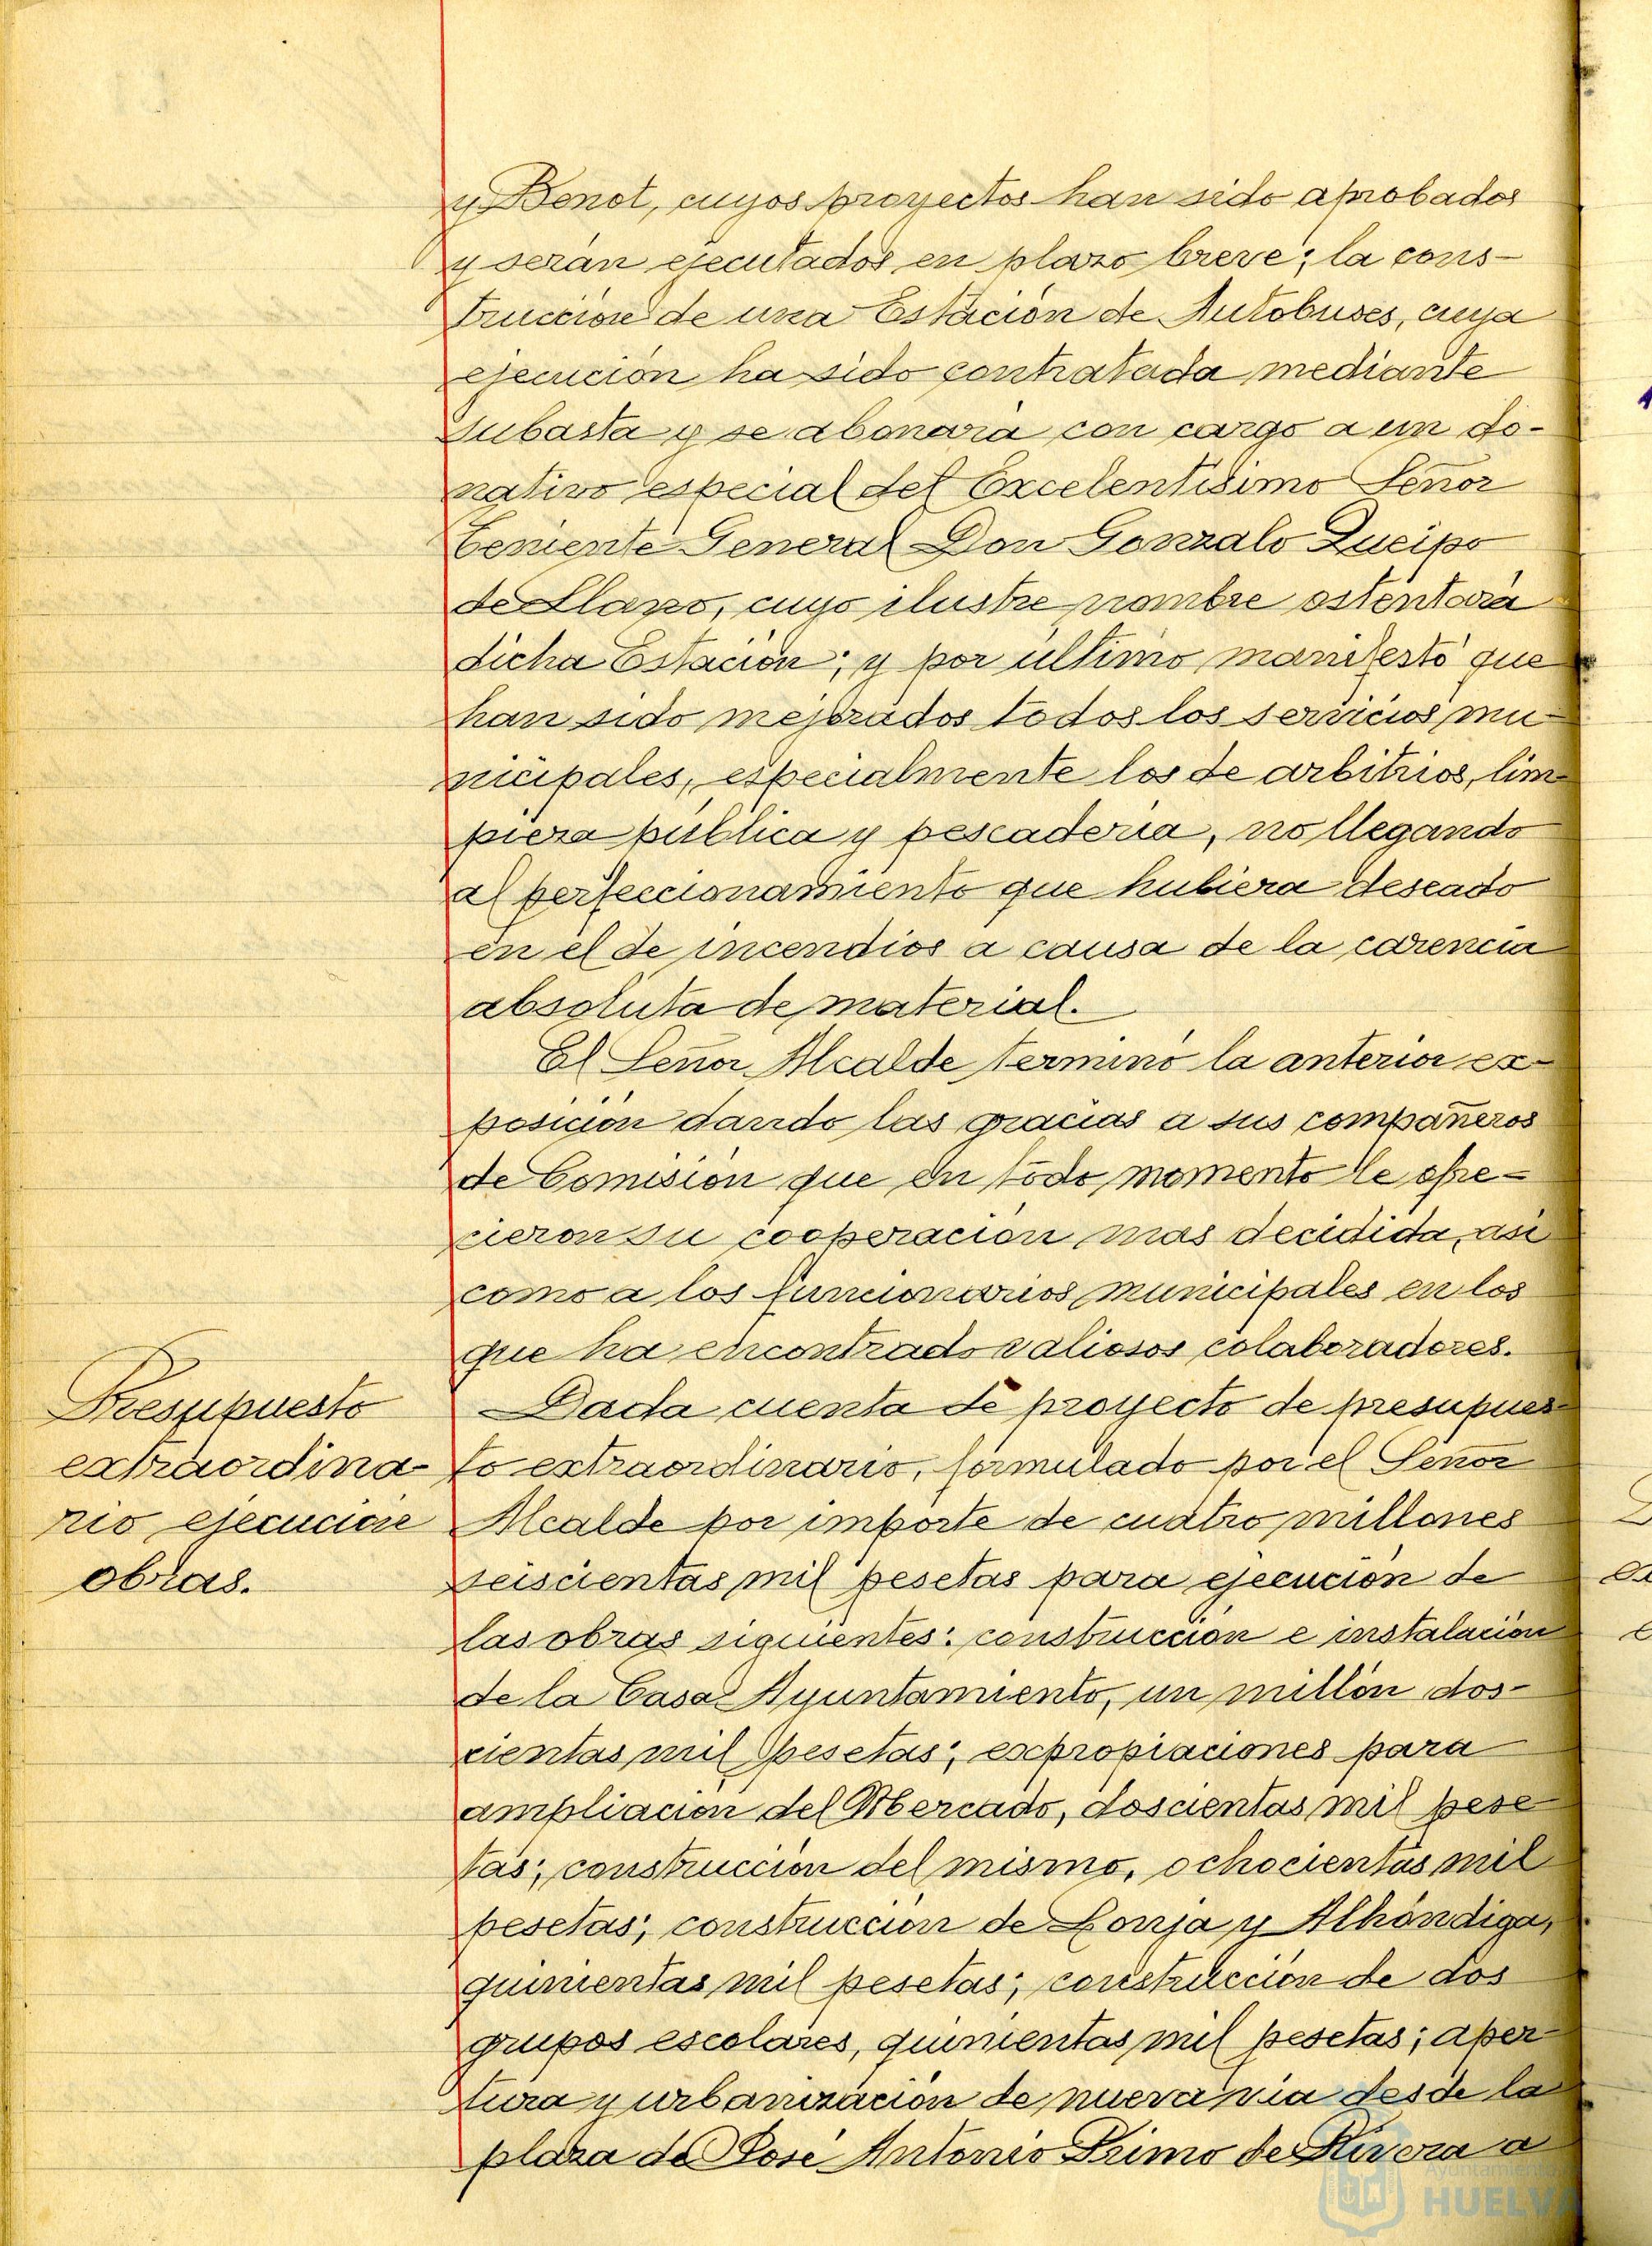 y Benot, cuyos proyectos han sido aprobados
y serán ejecutados en plazo breve; la cons-
trucción de una Estación de Autobuses, cuya
ejecución ha sido contratada mediante
subasta y se abonará con cargo a un do-
nativo especial del Excelentísimo Señor
Teniente General Don Gonzalo Queipo
de Llano, cuyo ilustre nombre ostentará
dicha Estación; y por último manifestó que
han sido mejorados todos los servicios mu-
nicipales, especialmente los de arbitrios, lim-
pieza pública y pescadería, no llegando
al perfeccionamiento que hubiera deseado
en el de incendios a causa de la carencia
absoluta de material.
El Señor Alcalde terminó la anterior ex-
posición dando las gracias a sus compañeros
de Comisión que en todo momento le ofre-
cieron su cooperación mas decidida, asi
como a los funcionarios municipales en los
que ha encontrado valiosos colaboradores.
Presupuesto
extraordina-
rio ejecución
obras.
Dada cuenta de proyecto de presupues-
to extraordinario, formulado por el Señor
Alcalde por importe de cuatro millones
seiscientas mil pesetas para ejecución de
las obras siguientes: construcción e instalación
de la Casa Ayuntamiento, un millón dos-
cientas mil pesetas; expropiaciones para
ampliación del Mercado, doscientas mil pese-
tas; construcción del mismo, ochocientas mil
pesetas; construcción de Lonja y Alhóndiga,
quinientas mil pesetas; construcción de dos
grupos escolares, quinientas mil pesetas; aper-
tura y urbanización de nueva vía desde la
plaza de José Antonio Primo de Rivera a
Ayuntamiento de
HUELVA